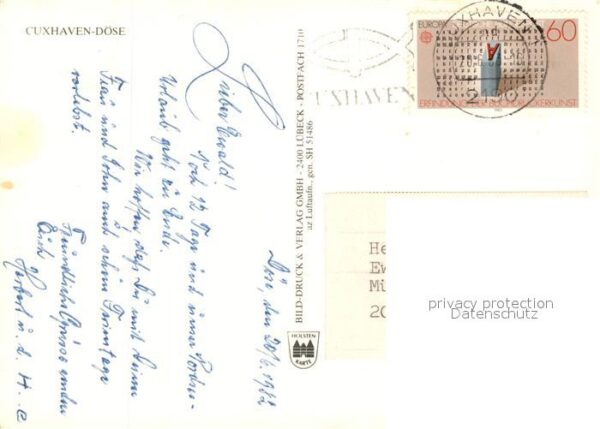 CUXHAVEN-DÖSE
Döse, den 20/6. 19
Lieber Ewald!
Noch 12 Tage und unser
Urlaub geht zu Ende.
Wir hoffen daß Du mit Deiner
Frau und Sohn auch schöne
verlebst.
Freundliche Grüsse senden
Euch
Herbert u. d. H.
BILD-DRUCK & VERLAG GMBH - 2400 LÜBECK - POSTFACH 1710
az Luftaufn., gen. SH 51486
HOLSTEN
KARTE
CUXHAVEN
CUXHAVEN 1
EUROPA
60
ERFINDUNG DER BUCHDRUCKERKUNST
He
Ew
Mü
20
privacy protection
Datenschutz